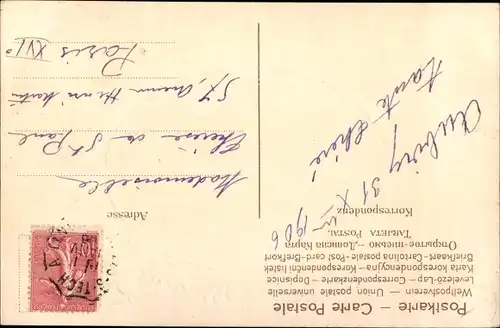 Postkarte — Carte Postale
Weltpostverein — Union postale universelle
Levelező-Lap — Correspondenzkarte — Dopisnice
Karta korespondencyjna — Korespondenční lístek
Briefkaart — Cartolina postale — Post card — Brefkort
Открытое письмо — Дописна Карта
TARJETA POSTAL
Korrespondenz
31 X 1906
tante chérie
Adresse
Mademoiselle
Thérèse de St Paul
57, Avenue Henri Martin
Paris XVIe